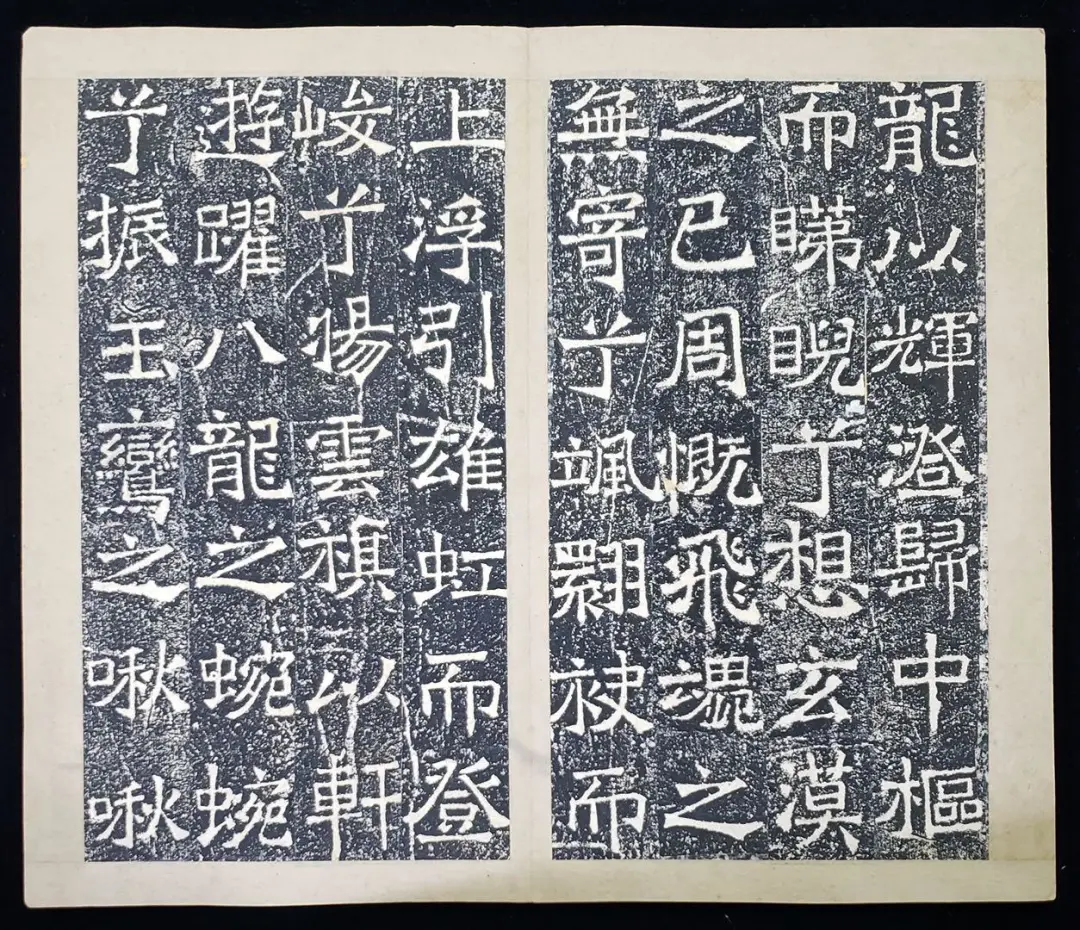 龍以輝澄歸中樞
而睇睨兮想玄漠
之已周慨飛魂之
無寄兮颯翾袂而
上浮引雄虹而登
峻兮揚雲旗以軒
遊躍八龍之蜿蜿
兮振玉鸞之啾啾